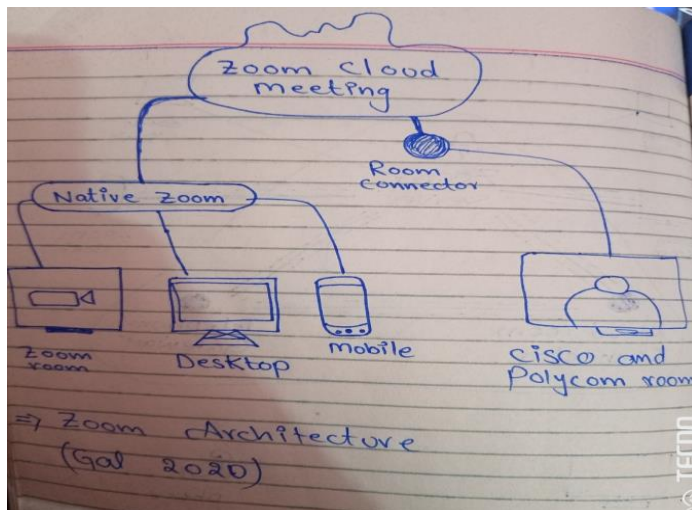 Zoom cloud
meeting
Room
connector
Native Zoom
Zoom
room
Desktop
Mobile
cisco and
Polycom room
⇒ Zoom Architecture
(Gal 2020)
TECNO